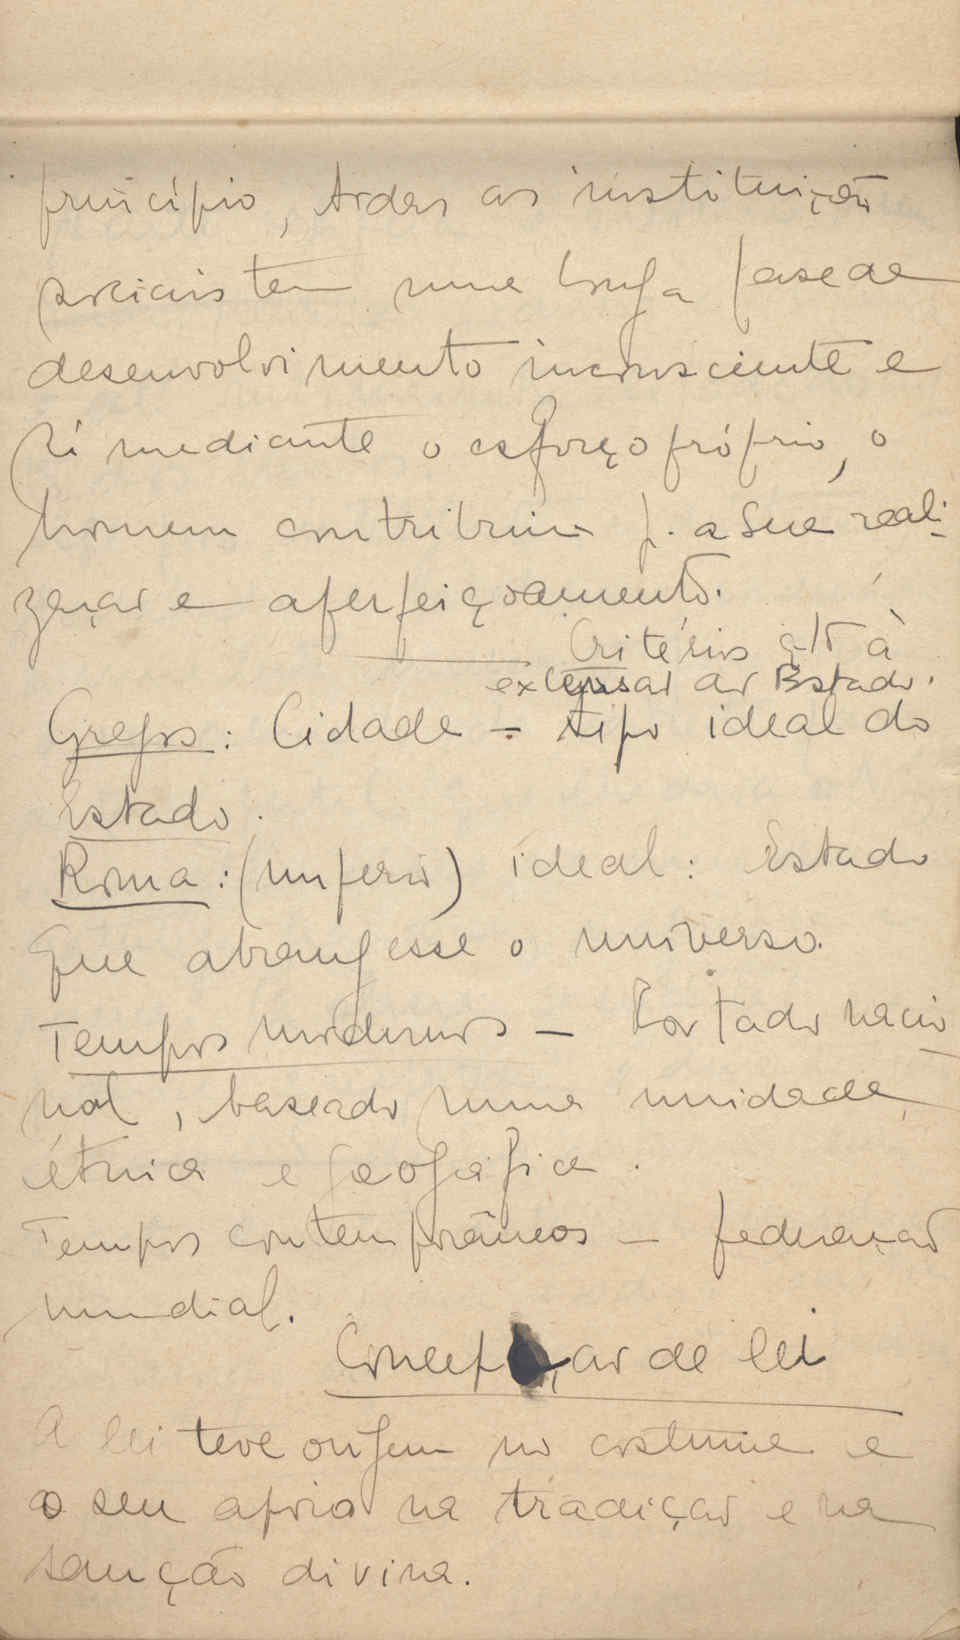 princípio, todas as instituições
sociais tem uma longa fase de
desenvolvimento inconsciente e
só mediante o esforço próprio, o
homem contribuiu p. a sua reali-
zação e aperfeiçoamento.
Critérios qto à
extensão do Estado.
Gregos: Cidade - tipo ideal do
Estado.
Roma: (império) ideal: Estado
que abrangesse o universo.
Tempos modernos - Estado nacio-
nal, baseado numa unidade
étnica e geográfica.
Tempos contemporâneos - federação
mundial.
Concepção de lei
A lei teve origem no costume e
o seu apoio na tradição e na
sanção divina.